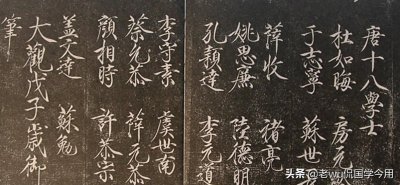 唐十八學士
杜如晦 房元
于志寧 蘇世
薛收 褚亮
姚思廉 陸德明
孔穎達 李元道
李守素 虞世南
蔡允恭 薛元敬
顏相時 許敬宗
蓋文達 蘇勗
大觀戊子歲御
筆
头条 @老wu侃国学今用